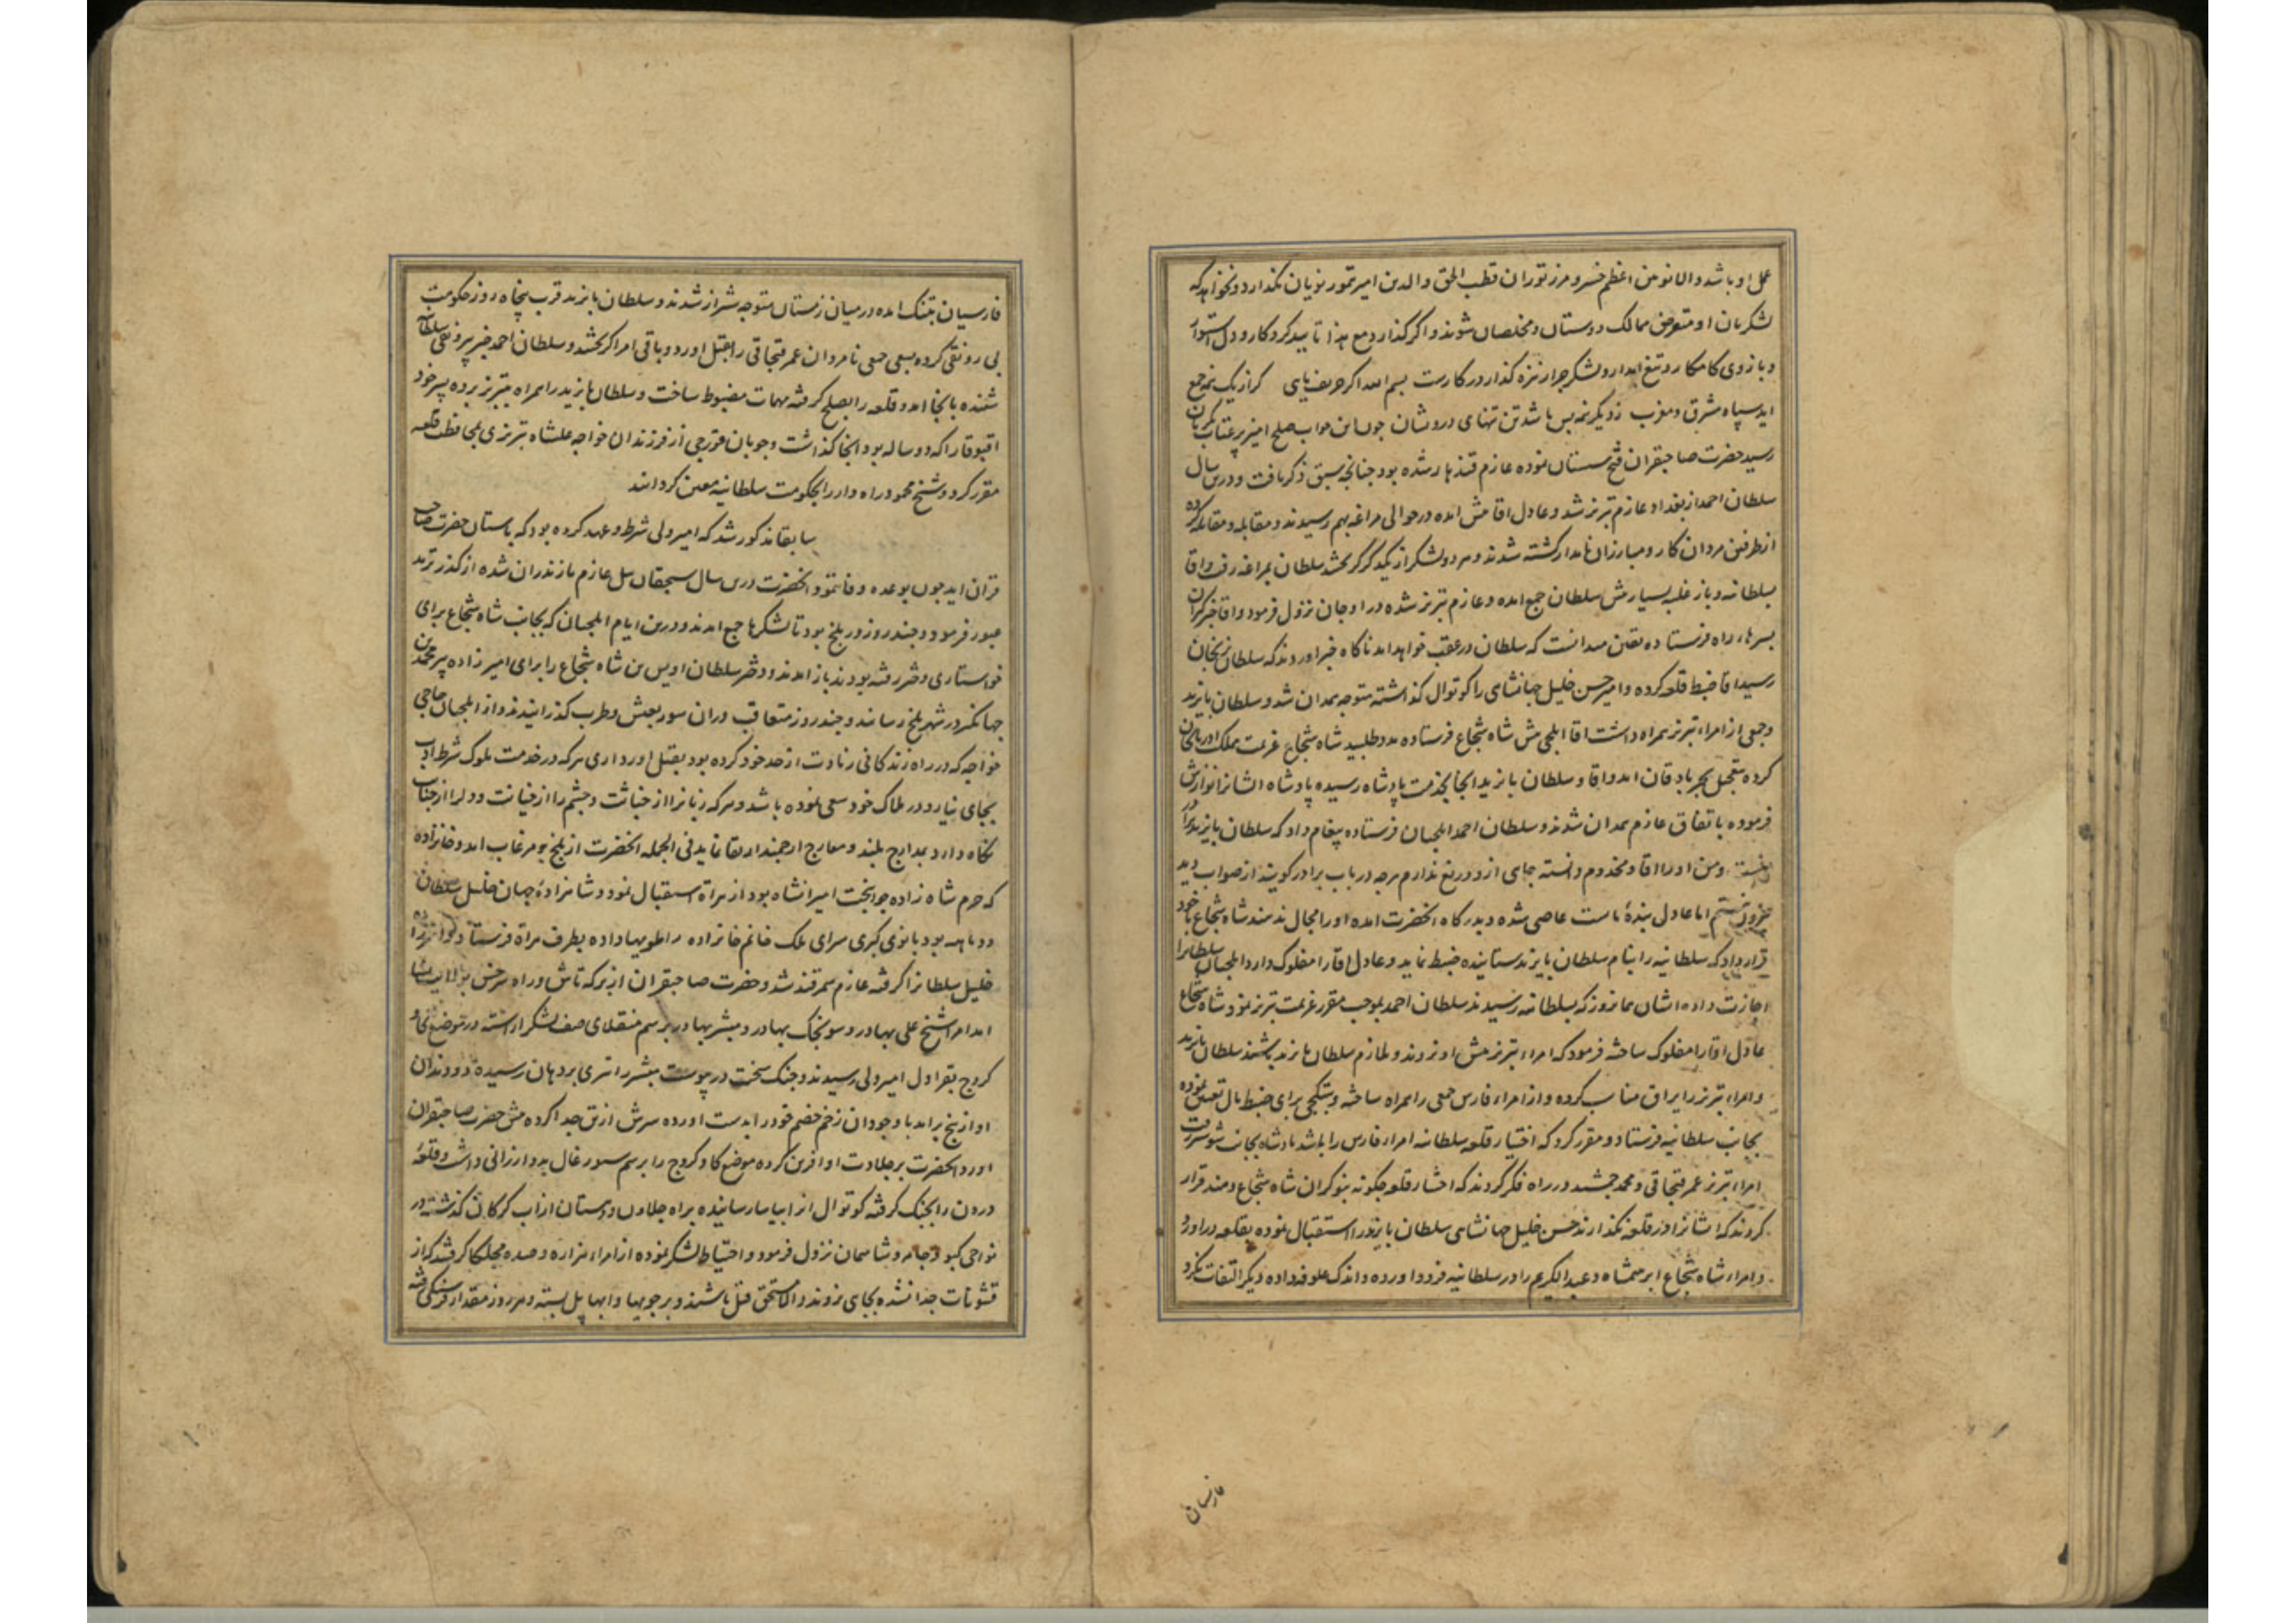 عمل او باشد و الا نوئین اعظم خسرو مرز توران قطب الحق و الدین امیر تیمور نویان نکذارد و نخواهد که
لشکریان او متعرض ممالک دوستان و مخلصان شوند و اکر کذارد مع هذا تایید کردکار و دل استوار
و بازوی کامکار و تیغ ابدار و لشکر جرار نیزه کذار در کارست بسم الله اکر حریف مایی کر از یک نیمه جمع
اید سپاه مشرق و مغرب ز دیکر نیمه بس باشد تن تنهای درویشان چون این جواب صلح امیز پر عتاب
رسید حضرت صاحبقران فتح سیستان نموده عازم قندهار شده بود چنانچه سبق ذکر یافت و درین سال
سلطان احمد از بغداد عازم تبریز شد و عادل اقا پیش امده در حوالی مراغه بهم رسیدند و مقابله و مقاتله کرده
از طرفین مردان کار و مبارزان نامدار کشته شدند و هر دو لشکر از یکدیکر کریخته سلطان بمراغه رفت و اقا
بسلطانیه و باز غلبه بسیار پیش سلطان جمع امده و عازم تبریز شده در اوجان نزول فرمود و اقا خبرکیران
بسرهاء راه فرستاده یقین میدانست که سلطان در عقب خواهد امد ناکاه خبر اوردند که سلطان بزنجان
رسید اقا ضبط قلعه کرده و امیر حسن خلیل جهانشاهی را کوتوال کذاشته متوجه همدان شد و سلطان بایزید
و جمعی از امراء تبریز همراه داشت اقا ایلچی پیش شاه شجاع فرستاده مدد طلبید شاه شجاع عزیمت مملکت اذربایجان
کرده بتعجیل بجربادقان امد و اقا و سلطان بایزید انجا بخدمت پادشاه رسیده پادشاه ایشانرا نوازش
فرموده باتفاق عازم همدان شدند و سلطان احمد ایلچیان فرستاده پیغام داد که سلطان بایزید برادر
منست و من او را اقا و مخدوم دانسته جای ازو دریغ ندارم هرچه در باب برادر کویند از صواب دید
بیرون نیستم اما عادل بنده ماست عاصی شده و بدرکاه انحضرت امده او را مجال ندهند شاه شجاع با خود
قرار داد که سلطانیه را بنام سلطان بایزید ستاینده ضبط نماید و عادل اقا را مفلوک دارد ایلچیان سلطانرا
اجازت داده ایشان همان روز که بسلطانیه رسیدند سلطان احمد بموجب مقرر عزیمت تبریز نمود و شاه شجاع
عادل اقا را مفلوک ساخته فرمود که امراء تبریز پیش او نروند و ملازم سلطان بایزید باشند سلطان بایزید
و امراء تبریز را یراق مناسب کرده و از امراء فارس جمعی را همراه ساخته و بتکچی برای ضبط مال تعیین نموده
بجانب سلطانیه فرستاد و مقرر کرد که اختیار قلعه سلطانیه امراء فارس را باشد پادشاه بجانب شوستر رفت
امراء تبریز عمر قبچاقی و محمد جمشید در راه فکر کردند که اختیار قلعه چکونه بنوکران شاه شجاع دهند قرار
کردند که ایشانرا در قلعه نکذارند حسن خلیل جهانشاهی سلطان بایزید را استقبال نموده بقلعه در اورد
و امراء شاه شجاع ابرهیمشاه و عبد الکریم را در سلطانیه فرود اورده و اندک علوفه داده دیکر التفات نکرد
فارسیان
فارسیان بتنک امده در میان زمستان متوجه شیراز شدند و سلطان بایزید قرب پنجاه روز حکومت
بی رونقی کرده بسعی جمعی نامردان عمر قبچاقی را بقتل اورد و باقی امرا کریختند و سلطان احمد خبر بیرونقی سلطانیه
شنیده بانجا امد و قلعه را بصلح کرفته مهمات مضبوط ساخت و سلطان بایزید را همراه بتبریز برده پسر خود
اقبوقا را که دو ساله بود انجا کذاشت و جوبان قورچی از فرزندان خواجه علیشاه تبریزی بمحافظت قلعه
مقرر کرد و شیخ محمود راه دار را بحکومت سلطانیه معین کردانید
سابقا مذکور شد که امیر ولی شرط و عهد کرده بود که باستان حضرت صاحب
قران اید چون بوعده وفا ننمود انحضرت درین سال سیچقان ئیل عازم مازندران شده از کذر ترمد
عبور فرمود و چند روز در بلخ بود تا لشکرها جمع امدند و درین ایام ایلچیان که بجانب شاه شجاع برای
خواستاری دختر رفته بودند باز امدند و دختر سلطان اویس بن شاه شجاع را برای امیرزاده پیر محمد بن
جهانکیر در شهر بلخ رسانند و چند روز متعاقب دران سور بعیش و طرب کذرانیدند و از ایلچیان حاجی
خواجه که در راه زندکانی زیادت از حد خود کرده بود بقتل اورد اری هر که در خدمت ملوک شرط ادب
بجای نیارد در هلاک خود سعی نموده باشد و هر که زبانرا از خباثت و چشم را از خیانت و دل را از جنایت
نکاه دارد بمدارج بلند و معارج ارجمند ارتقا نماید فی الجمله انحضرت از بلخ بمرغاب امد و خانزاده
که حرم شاه زاده جوانبخت امیرانشاه بود از هراة استقبال نمود و شاهزاده جهان خلیل سلطان
دو ماهه بود بانوی کبری سرای ملک خانم خانزاده را طویها داده بطرف هراة فرستاد و
خلیل سلطانرا کرفته عازم سمرقند شد و حضرت صاحبقران از برکه تاش و راه سرخس
امد امرا شیخ علی بهادر و سونجک بهادر و مبشر بهادر برسم منقلای صف لشکر اراسته در موضع کاو
کروج بقراول امیر ولی رسیدند و جنک سخت در پیوست مبشر را تیری بر دهان رسیده دو دندان
او از بیخ برامد با وجود ان زخم خصم خود را بدست اورده سرش از تن جدا کرده پیش حضرت صاحبقران
اورد انحضرت بر جلادت او افرین کرده موضع کاو کروج را برسم سیورغال بدو ارزانی داشت و قلعه
درون را بجنک کرفته کوتوال را بیاسا رسانیده براه جلاون دهستان از اب کرکان کذشته در
نواحی کبود جامه و شاسمان نزول فرمود و احتیاط لشکر نموده از امراء هزاره و صده مجلکا کرفتند که از
قشونات جدا نشده بجای نروند و الا مستحق قتل باشند و بر جویها و ابها پل بسته و هر روز مقدار فرسنکی رفته